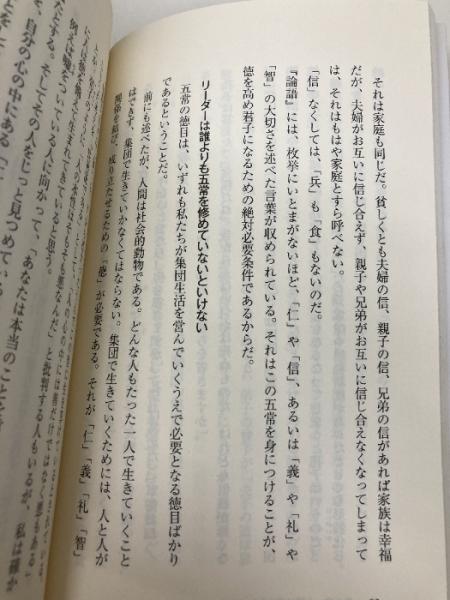 それは家庭も同じだ。貧しくとも夫婦の信、親子の信、兄弟の信があれば家族は幸福
だが、夫婦がお互いに信じ合えず、親子や兄弟がお互いに信じ合えなくなってしまって
は、それはもはや家庭とすら呼べない。
「信」なくしては、「兵」も「食」もないのだ。
『論語』には、枚挙にいとまがないほど、「仁」や「信」、あるいは「義」や「礼」や
「智」の大切さを述べた言葉が収められている。それはこの五常を身につけることが、
徳を高め君子になるための絶対必要条件であるからだ。
リーダーは誰よりも五常を修めていないといけない
五常の徳目は、いずれも私たちが集団生活を営んでいくうえで必要となる徳目ばかり
であるということだ。
前にも述べたが、人間は社会的動物である。どんな人もたった一人で生きていくこと
はできず、集団で生きていかなくてはならない。集団で生きていくためには、人と人が
関係を結び、成り立たせるための「徳」が必要である。それが「仁」「義」「礼」「智」
そもそも悪なんだ」と批判する人もいるが、私は確か
嘘をついている人がいると
たとする。そしてその人に向かって、「あなたは本当のことを
自分の心の中をじっと見つめている